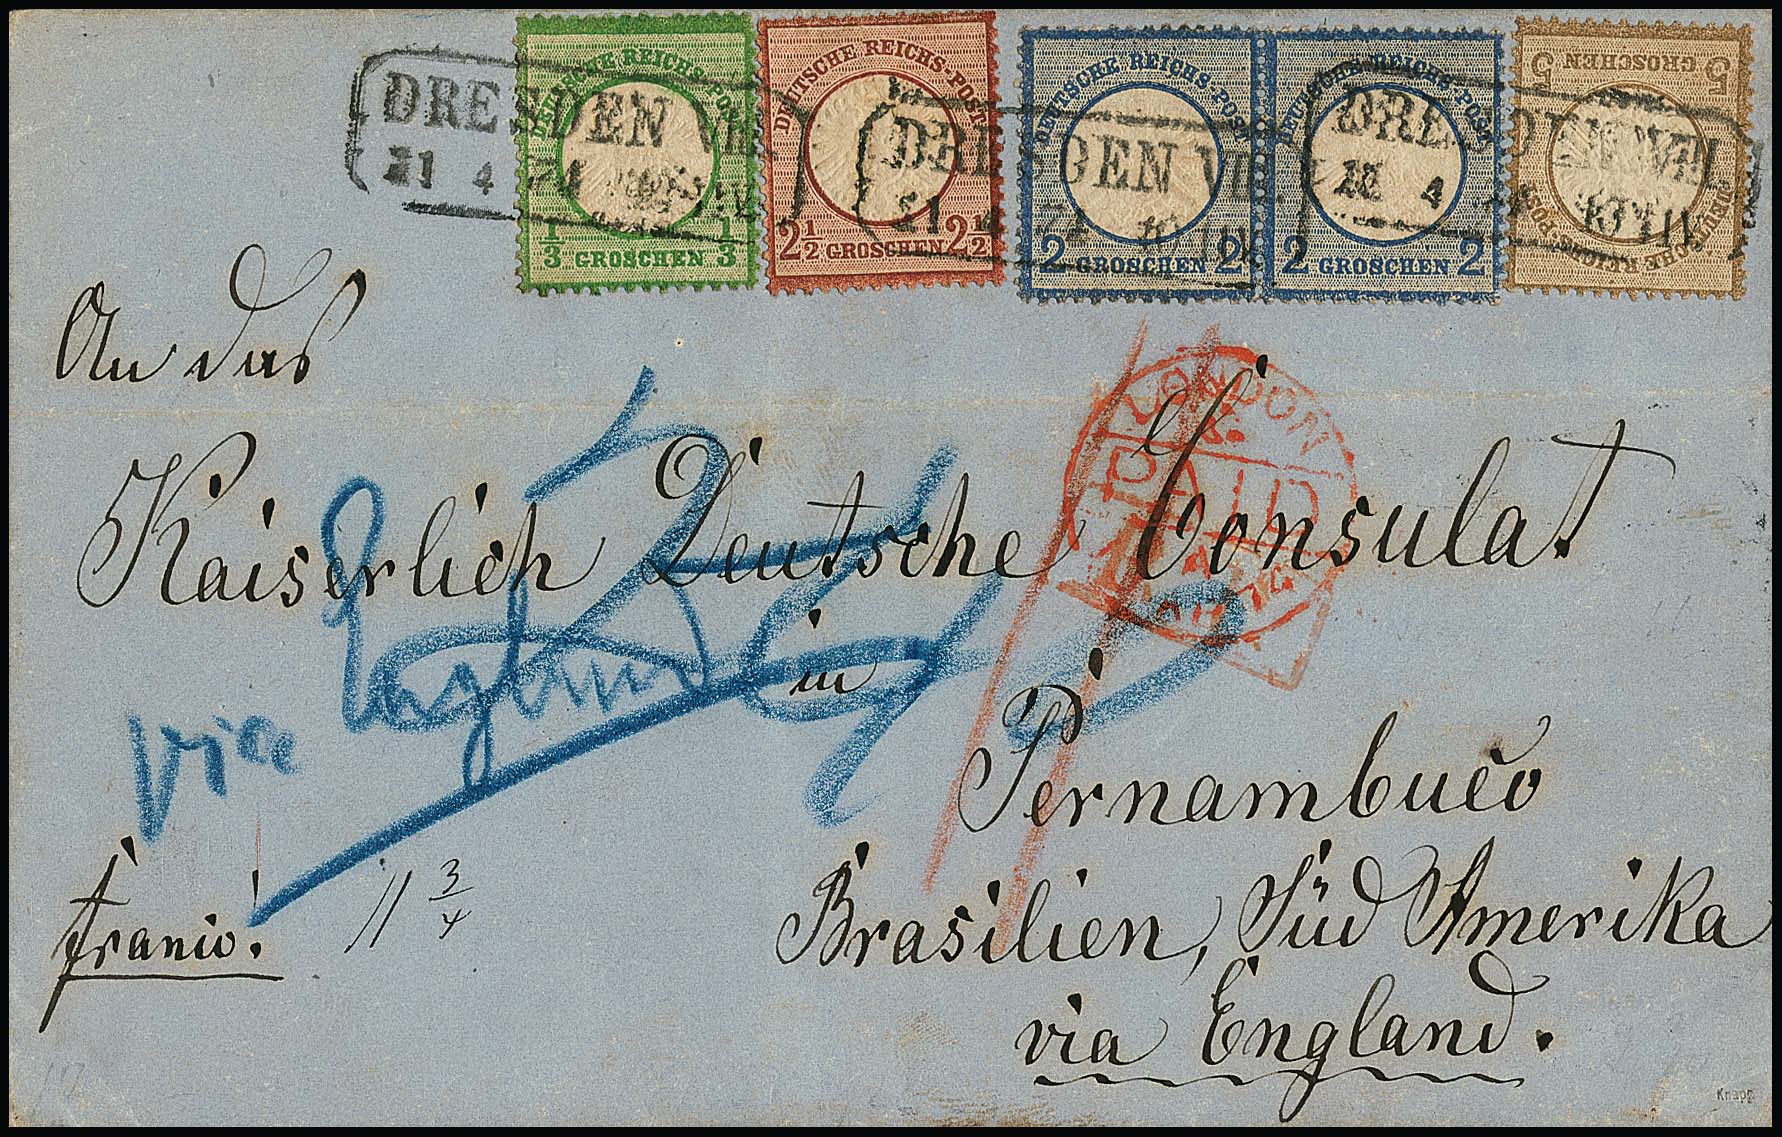 DEUTSCHE REICHS-POST
1/3 GROSCHEN 1/3
DEUTSCHE REICHS-POST
2 1/2 GROSCHEN 2 1/2
DEUTSCHE REICHS-POST
2 GROSCHEN 2
DEUTSCHE REICHS-POST
2 GROSCHEN 2
DEUTSCHE REICHS-POST
5 GROSCHEN 5
DRESDEN VIII
21 4 74
DRESDEN VIII
21 4 74
DRESDEN VIII
4
An das
Kaiserlich Deutsche Consulat
in
Pernambuco
Brasilien, Süd Amerika
via England.
franco.
11 3/4
via England
LONDON
PAID
Knapp